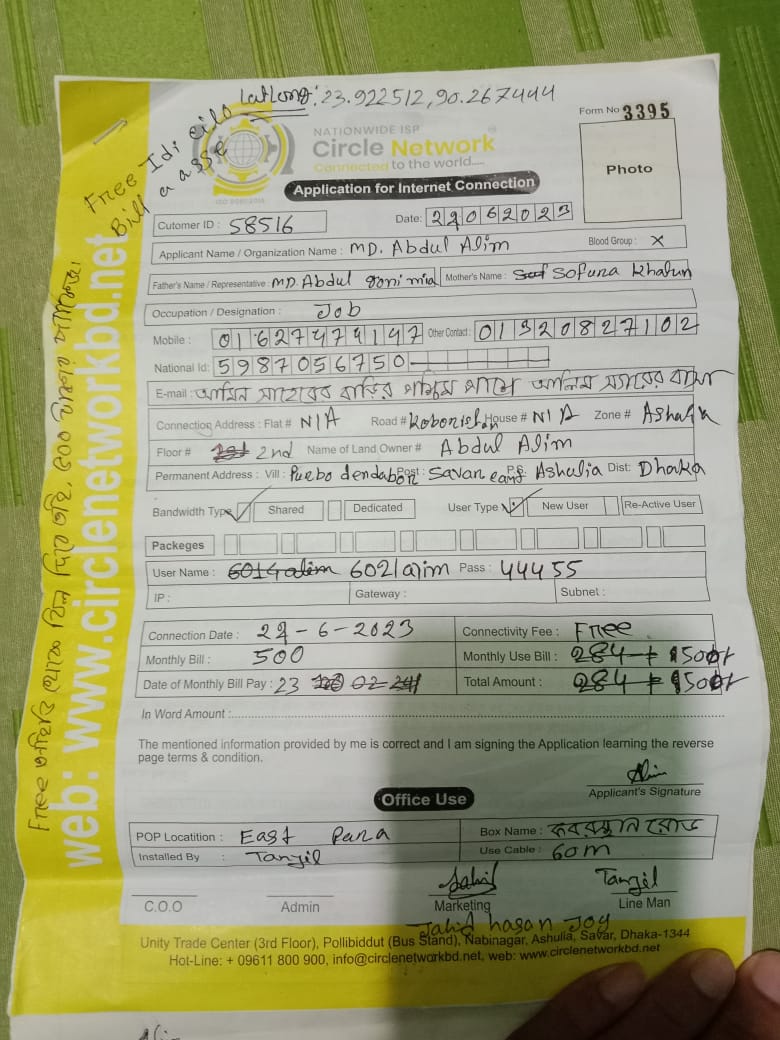 LatLong: 23.922512,90.267444
Form No 3395
Free Idi cilo
Bill a asse
NATIONWIDE ISP
Circle Network
Connected to the world....
ISO 9001:2015
Photo
Application for Internet Connection
Cutomer ID : 58516
Date: 22062023
Applicant Name / Organization Name : MD. Abdul Alim
Blood Group : X
Father's Name / Representative : MD. Abdul goni mia Mother's Name : Sofuna Khatun
Occupation / Designation : Job
Mobile : 01627474147 Other Contact : 01920827102
National Id: 5987056750
E-mail : আমিন সাহেবের বাড়ির পশ্চিম পাশে আলিম স্যারের বাসা
Connection Address : Flat # N/A Road # Koborishan House # N/A Zone # Ashulia
Floor # 1st 2nd Name of Land Owner # Abdul Alim
Permanent Address : Vill : Puebo dendabon Post : Savar cant P.S: Ashulia Dist: Dhaka
Bandwidth Type Shared Dedicated User Type New User Re-Active User
Packeges
User Name : 6014alim 602lalim Pass : 44455
IP : Gateway : Subnet :
Connection Date : 22-6-2023 Connectivity Fee : Free
Monthly Bill : 500 Monthly Use Bill : 284 500
Date of Monthly Bill Pay : 23 02-24 Total Amount : 284 500
In Word Amount :
The mentioned information provided by me is correct and I am signing the Application learning the reverse
page terms & condition.
Alim
Applicant's Signature
Office Use
POP Locatition : East Para Box Name : কবরস্থান রোড
Installed By : Tanjil Use Cable : 60m
Jahid Tanjil
C.O.O Admin Marketing Line Man
Jahid hasan Joy
Unity Trade Center (3rd Floor), Pollibiddut (Bus Stand), Nabinagar, Ashulia, Savar, Dhaka-1344
Hot-Line: + 09611 800 900, info@circlenetworkbd.net, web: www.circlenetworkbd.net
web: www.circlenetworkbd.net
Alim